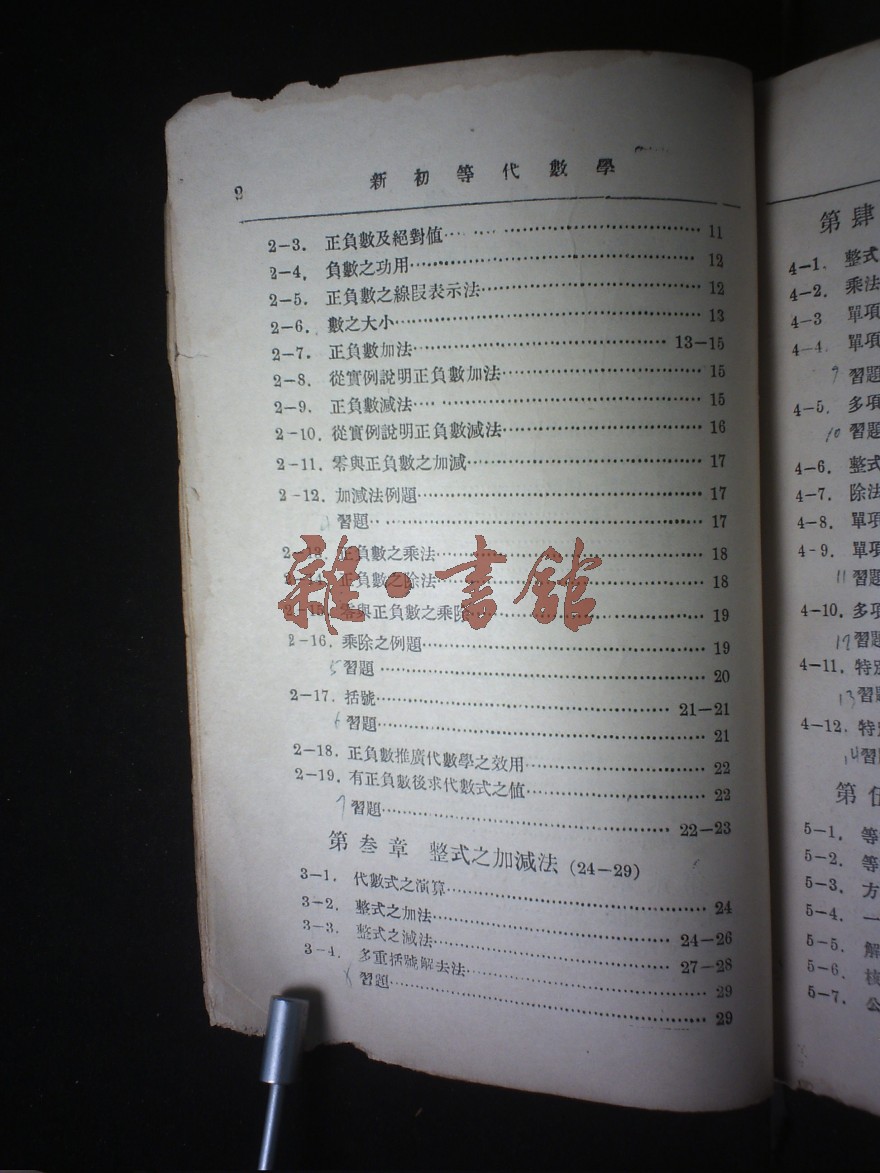 2 新初等代數學
2-3. 正負數及絕對值 11
2-4. 負數之功用 12
2-5. 正負數之線段表示法 12
2-6. 數之大小 13
2-7. 正負數加法 13-15
2-8. 從實例說明正負數加法 15
2-9. 正負數減法 15
2-10. 從實例說明正負數減法 16
2-11. 零與正負數之加減 17
2-12. 加減法例題 17
習題 17
2-13. 正負數之乘法 18
2-14. 正負數之除法 18
2-15. 零與正負數之乘除 19
雜·書館
2-16. 乘除之例題 19
5 習題 20
2-17. 括號 21-21
6 習題 21
2-18. 正負數推廣代數學之效用 22
2-19. 有正負數後求代數式之值 22
7 習題 22-23
第叁章 整式之加減法 (24-29)
3-1. 代數式之演算 24
3-2. 整式之加法 24-26
3-3. 整式之減法 27-28
3-4. 多重括號解去法 29
習題 29
第肆
4-1. 整式
4-2. 乘法
4-3 單項
4-4. 單項
9 習題
4-5. 多項
10 習題
4-6. 整式
4-7. 除法
4-8. 單項
4-9. 單項
11 習題
4-10. 多項
12 習題
4-11. 特別
13 習題
4-12. 特
14 習
第伍
5-1. 等
5-2. 等
5-3. 方
5-4. 一
5-5. 解
5-6. 核
5-7. 公